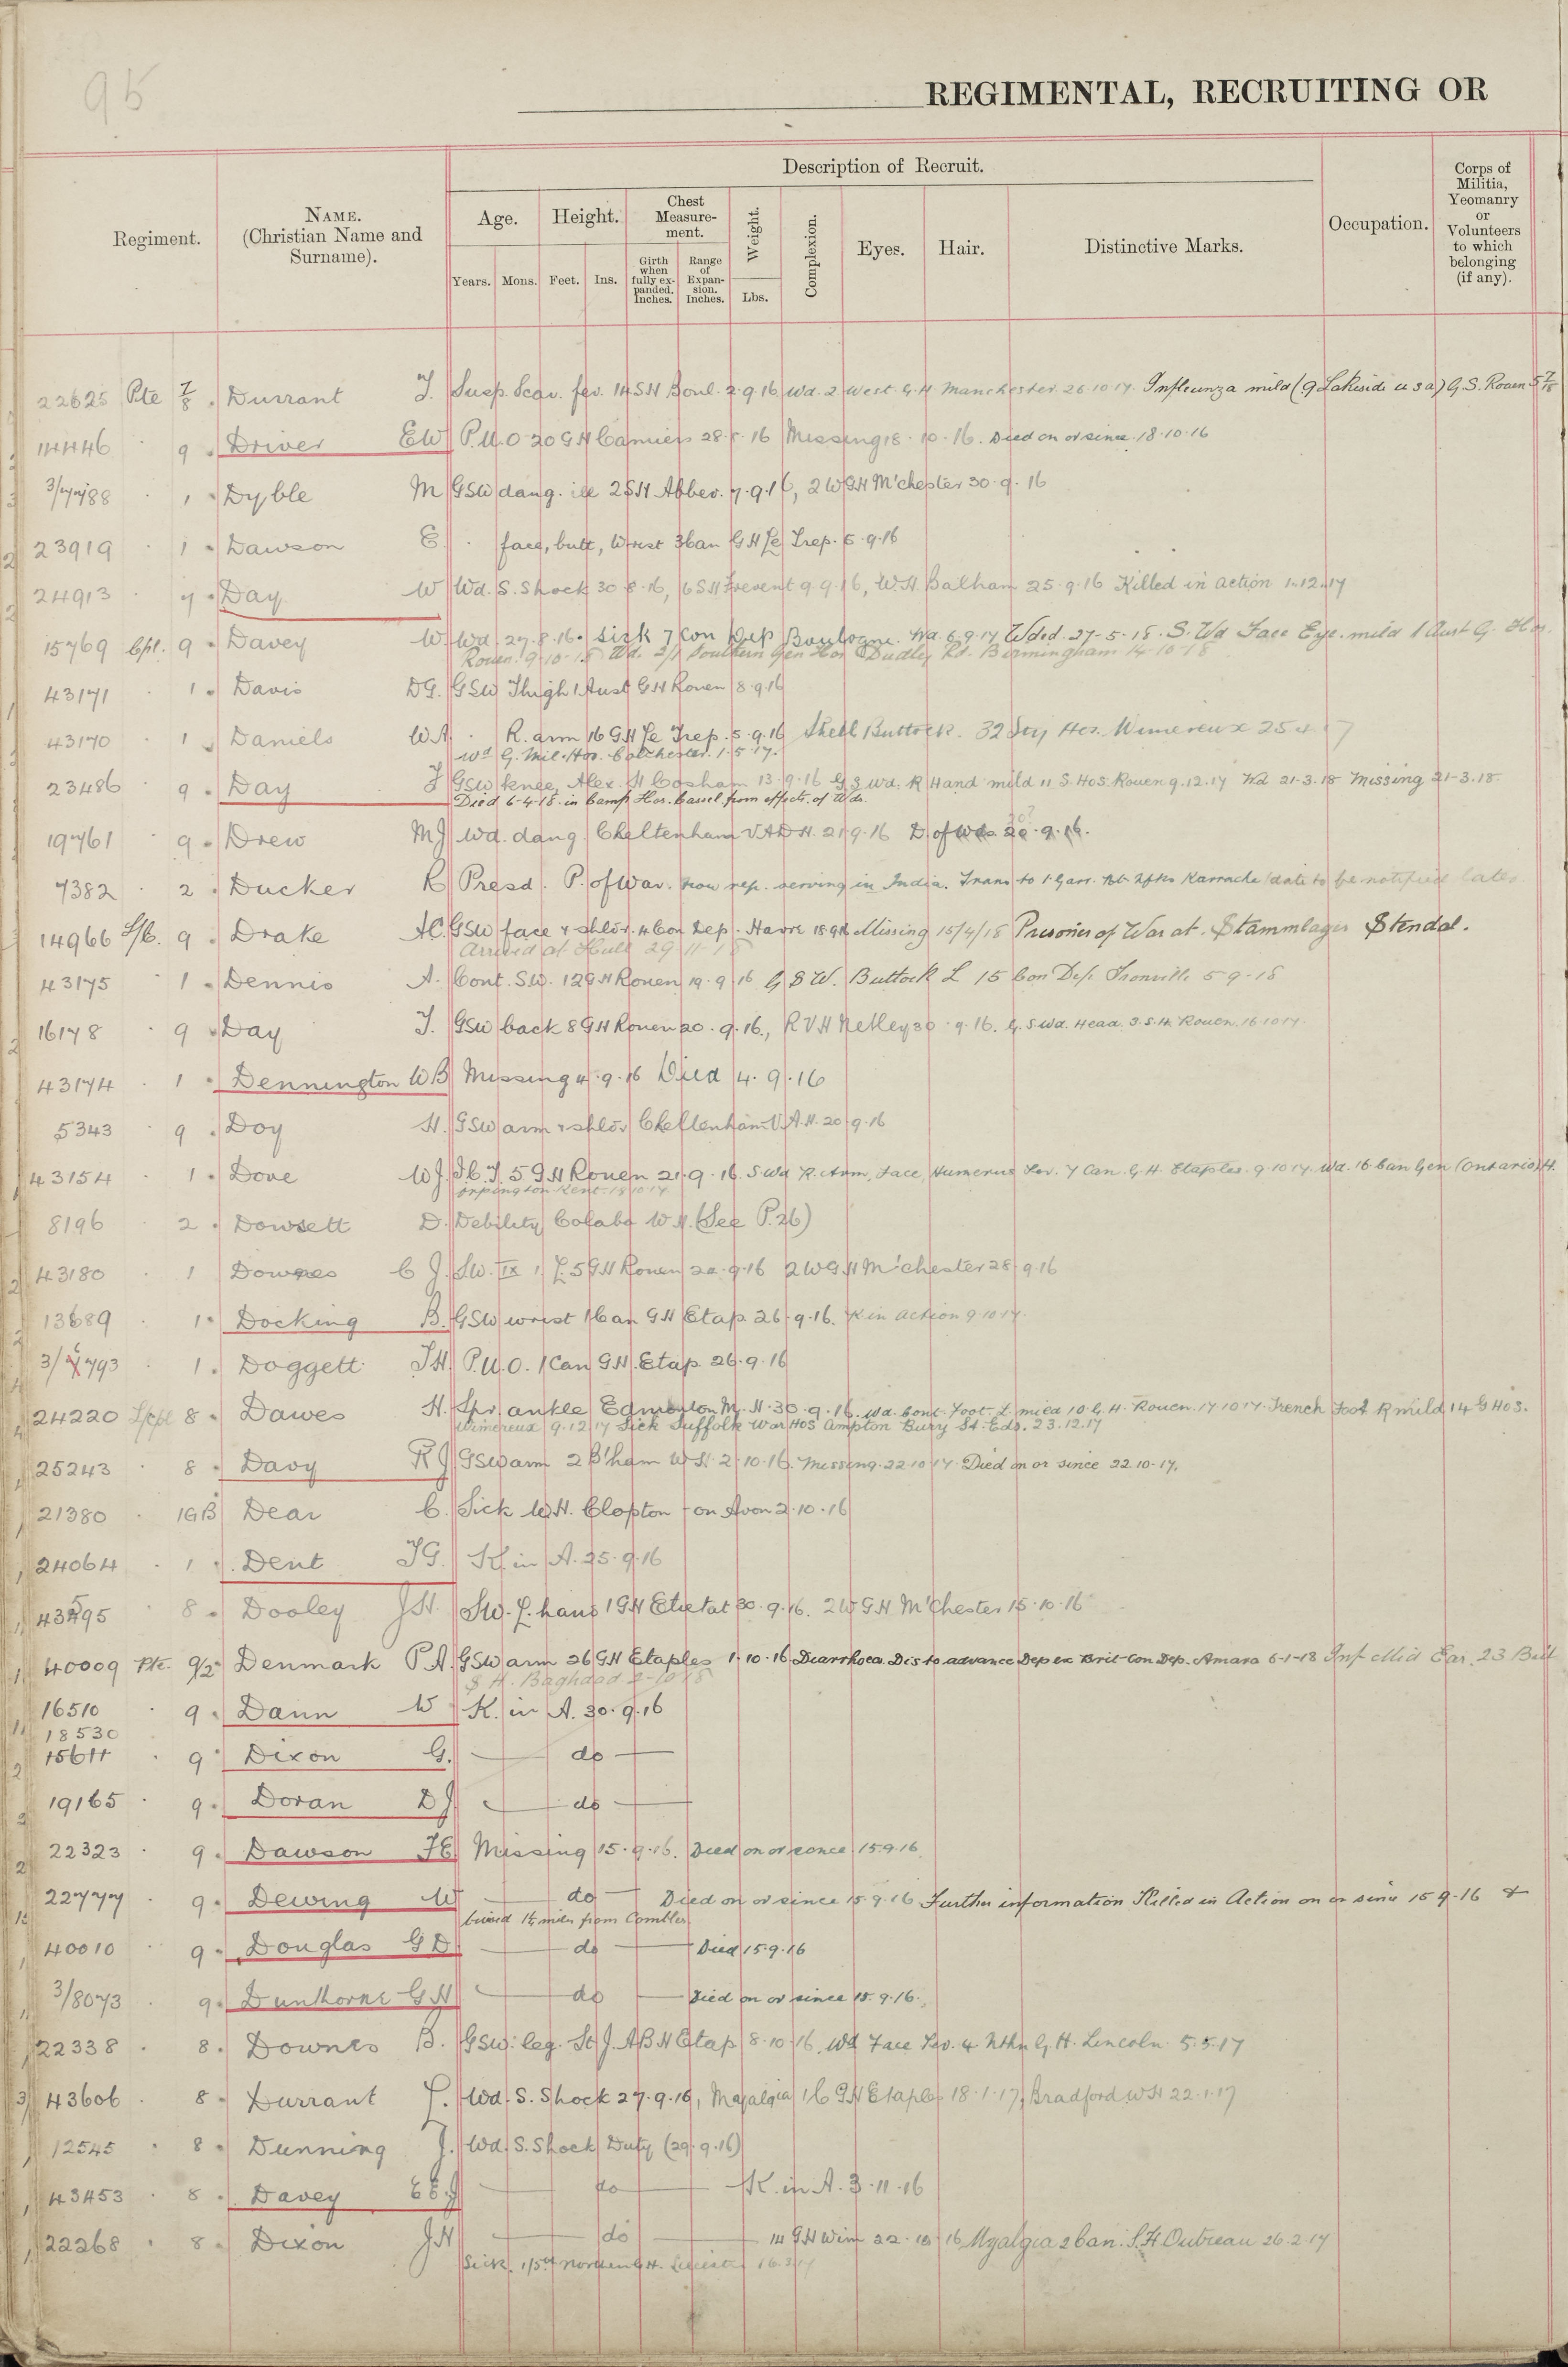 95
REGIMENTAL, RECRUITING OR
Regiment.
NAME.
(Christian Name and
Surname).
Description of Recruit.
Age.
Years. Mons.
Height.
Feet. Ins.
Chest
Measure-
ment.
Girth
when
fully ex-
panded.
Inches.
Range
of
Expan-
sion.
Inches.
Weight.
Lbs.
Complexion.
Eyes.
Hair.
Distinctive Marks.
Occupation.
Corps of
Militia,
Yeomanry
or
Volunteers
to which
belonging
(if any).
22625 Pte 7/8 Durrant J. Susp. Scar. fev. 14 S H Boul. 2.9.16 Wd. 2 West. G. H. Manchester 26.10.17. Influenza mild (9 Lakeside U S A) G. S. Rouen
14446 9 Driver E W P.U.O. 20 G H Camiers 28.8.16 Missing 18.10.16. Died on or since 18.10.16
3/7788 1 Dyble M GSW dang. ill 2 S H Abbev. 7.9.16, 2 W G H M'chester 30.9.16
23919 1 Dawson E face, butt, wrist 3 Can G H Le Trep. 5.9.16
24913 7 Day W Wd. S. Shock 30.8.16, 6 S H Frevent 9.9.16, W. H. Balham 25.9.16 Killed in action 1.12.17
15769 Cpl. 9 Davey W. Wd. 27.8.16. Sick 7 Con Dep Boulogne. Wd. 6.9.17 Wded. 27-5-18. S. Wd Face Eye. mild 1 Aust G. Hos.
Rouen. 9-10-18 Wd. 2/1 Southern Gen Hos Dudley Rd. Birmingham 14-10-18
43171 1 Davis D G. GSW Thigh 1 Aust G H Rouen 8.9.16
43170 1 Daniels W A. R. arm 16 G H Le Trep. 5.9.16 Shell Buttock. 32 Sty Hos. Wimereux 25.4.17
Wd G. Mil. Hos. Colchester. 1.5.17.
23486 9 Day J GSW knee, Alex. H Cosham 13.9.16 G S Wd. R Hand mild 11 S. Hos. Rouen 9.12.17 Wd 21-3-18 Missing 21-3-18.
Died 6-4-18 in Camp Hos. Cassel from effects of Wds.
19761 9 Drew M J Wd. dang. Cheltenham V A D H. 21.9.16 D. of Wds. 20.9.16.
7382 2 Ducker R Presd. P. of War. now rep. serving in India. Trans to 1 Garr. Karrachi (date to be notified later
14966 L/C. 9 Drake A C. GSW face & shldr. 4 Con Dep. Havre 18.9.16 Missing 15/4/18 Prisoner of War at Stammlager Stendal.
Arrived at Hull 29-11-18
43175 1 Dennis A. Cont. S.W. 12 G H Rouen 19.9.16 G S W. Buttock L 15 Con Dep. Trouville 5-9-18
16178 9 Day J. GSW back 8 G H Rouen 20.9.16., R V H Netley 30.9.16. G. S Wd. Head. 3. S. H. Rouen. 16.10.17.
43174 1 Dennington W B Missing 4.9.16 Died 4.9.16
5343 9 Doy H. GSW arm & shldr Cheltenham V.A.H. 20.9.16
43154 1 Dove W J. I.C.T. 5 G H Rouen 21.9.16 S Wd R. Arm, Face, Humerus Sev. 7 Can. G. H. Etaples. 9.10.17. Wd. 16 Can Gen (Ontario) H.
Orpington Kent. 18.10.17
8196 2 Dowsett D. Debility Colaba W H. (See P. 26)
43180 1 Downes C J. SW. L. 5 G H Rouen 22.9.16 2 W G H M'chester 28.9.16
13689 1 Docking B. GSW wrist 1 Can G H Etap. 26.9.16. K in action 9.10.17.
3/ 793 1 Doggett J H. P.U.O. 1 Can G H. Etap 26.9.16
24220 L/Cpl 8 Dawes H. Spr. ankle Edmonton M. H. 30.9.16. Wd. Cont. Foot L mild 10 G. H. Rouen. 17.10.17. Trench Foot R mild 14 G Hos.
Wimereux 9.12.17 Sick Suffolk War Hos Ampton Bury St. Eds. 23.12.17
25243 8 Davy R J GSW arm 2 B'ham W H 2.10.16. Missing 22.10.17. Died on or since 22.10.17.
21380 1GB Dear C. Sick W. H. Clopton-on Avon 2.10.16
24064 1 Dent J G. K. in A. 25.9.16
43595 8 Dooley J H. SW. L. hand 1 G H Etretat 30.9.16. 2 W G H M'chester 15.10.16
40009 Pte. 9/2 Denmark P A. GSW arm 26 G H Etaples 1.10.16 Diarrhoea Dis to advance Dep ex Brit-Con Dep. Amara 6-1-18 Inf Mid Ear. 23 Brit
S H. Baghdad 2-10-18
16510 9 Dann W K. in A. 30.9.16
18530
15611 9 Dixon G. do
19165 9 Doran D J do
22323 9 Dawson F E Missing 15.9.16. Died on or since 15.9.16.
22777 9 Dewing W do Died on or since 15.9.16 Further information Killed in Action on or since 15-9-16 &
buried 1½ miles from Combles
40010 9 Douglas G D do Died 15.9.16
3/8073 9 Dunthorne G H do Died on or since 15.9.16.
22338 8 Downes B. GSW. leg. St J. A B H Etap 8.10.16 Wd Face Sev. 4 Nthn G. H. Lincoln 5.5.17
43606 8 Durrant L. Wd. S. Shock 27.9.16, Myalgia 1 C G H Etaples 18.1.17, Bradford W H 22.1.17
12545 8 Dunning J. Wd S. Shock Duty (29.9.16)
43453 8 Davey E E J do K. in A. 3.11.16
22268 8 Dixon J H do 14 G H Wim 22.10.16 Myalgia 2 Can. S. H Outreau 26.2.17
Sick. 1/5th Northern G H. Leicester 16.3.17